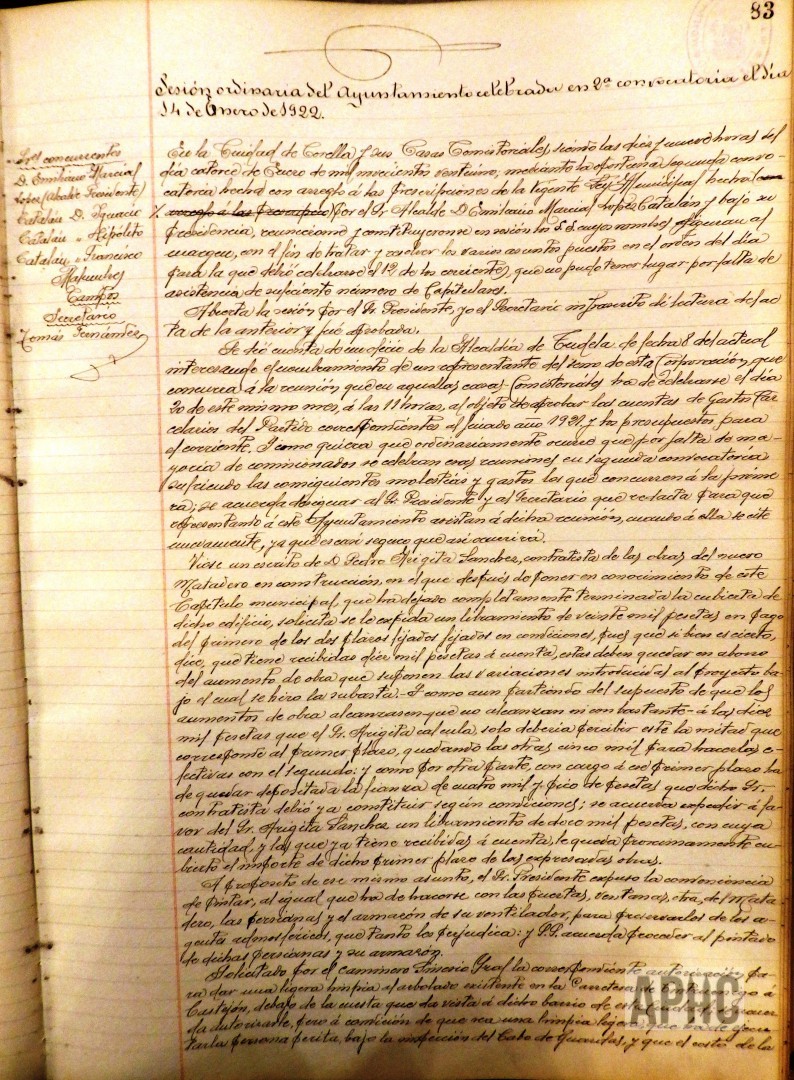 83
Sesión ordinaria del Ayuntamiento celebrada en 2ª convocatoria el día
14 de Enero de 1922.
Sres concurrentes
D. Emiliano Marcial
López (Alcalde Presidente)
Catalán D. Ignacio
Catalán " Hipólito
Catalán " Francisco
Campos
Secretario
Tomás Fernández
En la Ciudad de Corella y sus Casas Consistoriales, siendo las diez y nueve horas del
día catorce de Enero de mil novecientos ventiuno; mediante la oportuna segunda convo-
catoria hecha con arreglo á las prescripciones de la vigente Ley Municipal hecha con
arreglo á las por el Sr Alcalde D. Emiliano Marcial López Catalán y bajo su
Presidencia, reuniéronse y constituyéronse en sesión los S.S. cuyos nombres figuran al
margen, con el fin de tratar y resolver los varios asuntos puestos en el orden del día
para la que debió celebrarse el 12 de los corrientes, que no pudo tener lugar por falta de
asistencia de suficiente número de Capitulares.
Abierta la sesión por el Sr Presidente, yo el Secretario infrascrito di lectura del ac-
ta de la anterior y fué aprobada.
Se dió cuenta de un oficio de la Alcaldía de Tudela de fecha 8 del actual
interesando el nombramiento de un representante del seno de esta Corporación, que
concurra á la reunión, que en aquellas casas Consistoriales ha de celebrarse el día
20 de este mismo mes, á las 11 horas, al objeto de aprobar las cuentas de Gastos Car-
celarios del Partido correspondientes al finado año 1921, y los presupuestos para
el corriente. Y como quiera que ordinariamente ocurre que por falta de ma-
yoría de comisionados se celebran esas reuniones en segunda convocatoria
sufriendo las consiguientes molestias y gastos los que concurren á la prime-
ra; se acuerda designar al Sr. Presidente y al Secretario que redacta para que
representando á este Ayuntamiento asistan á dicha reunión, cuando á ella se cite
nuevamente, ya que es casi seguro que así ocurrirá.
Vióse un escrito de D. Pedro Arigita Sanchez, contratista de las obras del nuevo
Matadero en construcción, en el que después de poner en conocimiento de este
Capítulo municipal, que ha dejado completamente terminada la cubierta de
dicho edificio, solicita se le expida un libramiento de veinte mil pesetas en pago
del primero de los dos plazos fijados fijados en condiciones, pues que si bien es cierto,
dice, que tiene recibidas diez mil pesetas á cuenta, estas deben quedar en abono
del aumento de obra que suponen las variaciones introducidas al proyecto ba-
jo el cual se hizo la subasta.- Y como aun partiendo del supuesto de que los
aumentos de obra alcanzasen-que no alcanzan ni con bastante-á las diez
mil pesetas que el Sr. Arigita calcula, solo debería percibir este la mitad que
corresponde al primer plazo, quedando las otras cinco mil para hacerlas e-
fectivas con el segundo: y como por otra parte, con cargo á ese primer plazo ha
de quedar depositada la fianza de cuatro mil y pico de pesetas que dicho Sr.
contratista debió ya constituir según condiciones; se acuerda expedir á fa-
vor del Sr. Arigita Sanchez un libramiento de doce mil pesetas, con cuya
cantidad, y las que ya tiene recibidas á cuenta, le queda proximamente cu-
bierto el importe de dicho primer plazo de las expresadas obras.
A propósito de ese mismo asunto, el Sr. Presidente expuso la conveniencia
de pintar, al igual que ha de hacerse con las puertas, ventanas, etra, del Mata-
dero, las persianas y el armazón de su ventilador, para preservarlos de los a-
gentes atmosféricos, que tanto los perjudica: y S.S. acuerda proceder al pintado
de dichas persianas y su armazón.
Solicitado por el caminero Gral la correspondiente autorización pa-
ra dar una ligera limpia al arbolado existente en la Carretera de
Castejón, debajo de la cuesta que da vista á dicho barrio de
da autorizarle, pero á condición de que sea una limpia ligera que ha de
persona perita, bajo la inspección del Cabo de Guardas, y que el costo de la
APHC